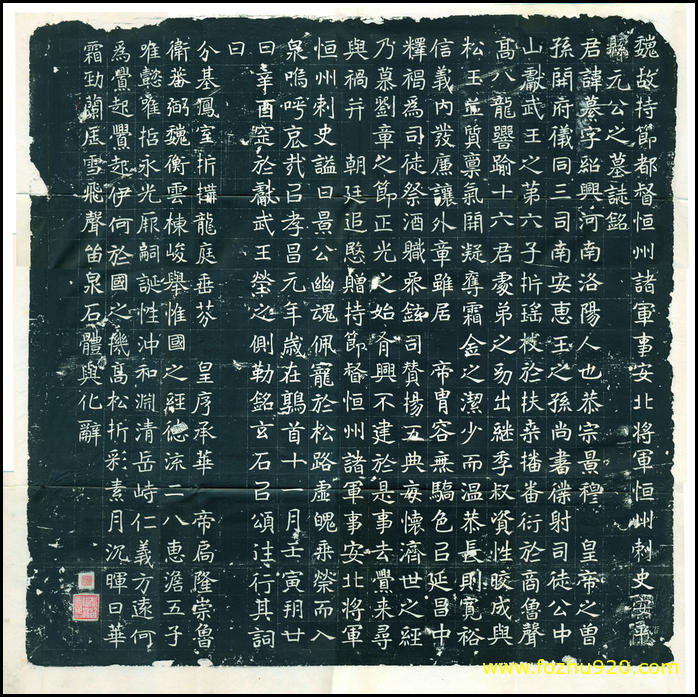 魏故持節都督恒州諸軍事安北將軍恒州刺史安平
縣元公之墓誌銘
君諱纂字紹興河南洛陽人也恭宗景穆 皇帝之曾
孫開府儀同三司南安惠王之孫尚書僕射司徒公中
山獻武王之第六子折瑤枝於扶桒播番衍於商魯聲
高八龍譽踰十六君處弟之幼出継季叔資性成與
松玉並質稟氣開凝奪霜金之潔少而温恭長則寬裕
信義內發廉讓外章雖居 帝胄容無驕色㠯延昌中
釋褐為司徒祭酒職鉉司賛揚五典每懷濟世之經
乃慕劉章之節正光之始興不建於是事去舋来尋
與禍并 朝廷追愍贈持節督恒州諸軍事安北將軍
恒州刺史謚曰景公幽魂佩寵於松路虛魄乘榮而入
泉嗚呼哀㢤㠯孝昌元年歲在鶉首十一月壬寅玥廿
日辛酉窆於獻武王塋之側勒銘玄石㠯頌行其詞
曰
分基鳳室折搆龍庭垂芬 皇序承華 帝扃隆崇魯
衛蕃弼魏衡雲棟峻舉惟國之經德流二八惠澹五子
唯懿唯括永光厥嗣誕性沖和淵清岳峙仁義方遠何
為舋起舋起伊何於國之機高松折彩素月沉暉日華
霜勁蘭風雪飛聲笛泉石體與化辭
www.fozhu920.com